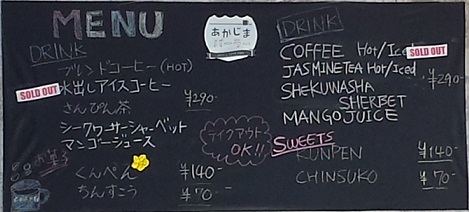 MENU
DRINK
ブレンドコーヒー(HOT)
SOLD OUT
水出しアイスコーヒー
さんぴん茶
¥290-
シークワーサーシャーベット
マンゴージュース
お菓子
くんぺん ¥140-
ちんすこう ¥70-
COFFEE
あかじま
テイクアウト
OK!!
DRINK
COFFEE Hot/Iced
SOLD OUT
JASMINETEA Hot/Iced
¥290-
SHEKUWASHA
SHERBET
MANGO JUICE
SWEETS
KUNPEN ¥140-
CHINSUKO ¥70-